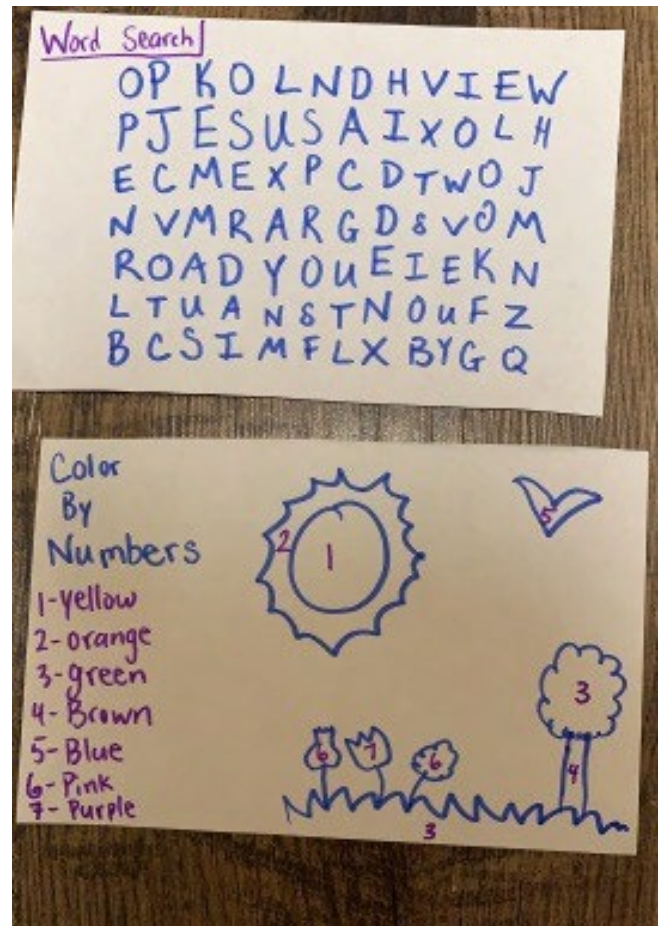 Word Search
OP K O L N D H V I E W
P J E S U S A I X O L H
E C M E X P C D T W O J
N V M R A R G D S V O M
R O A D Y O U E I E K N
L T U A N S T N O U F Z
B C S I M F L X B Y G Q
Color
By
Numbers
1-yellow
2-orange
3-green
4-Brown
5-Blue
6-Pink
7-Purple
2
1
5
3
4
6
7
6
3